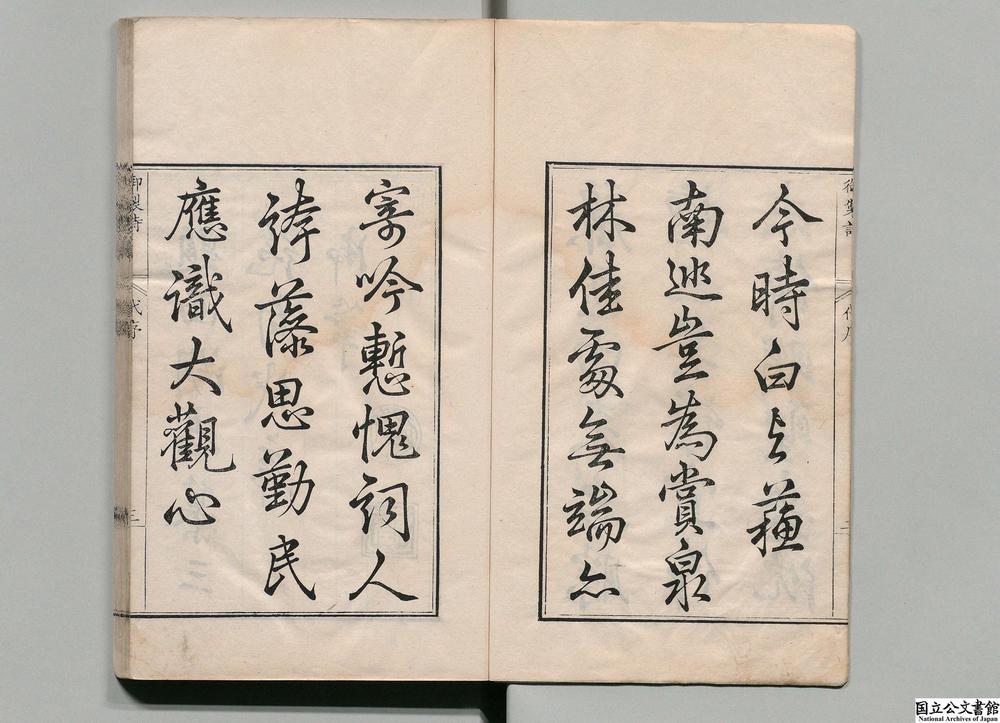 今時白与蘓
南廵豈為賞泉
林佳處無端亦
寄吟慙愧詞人
誇藻思勤民
應識大觀心
御製詩
代序
三
国立公文書館
National Archives of Japan